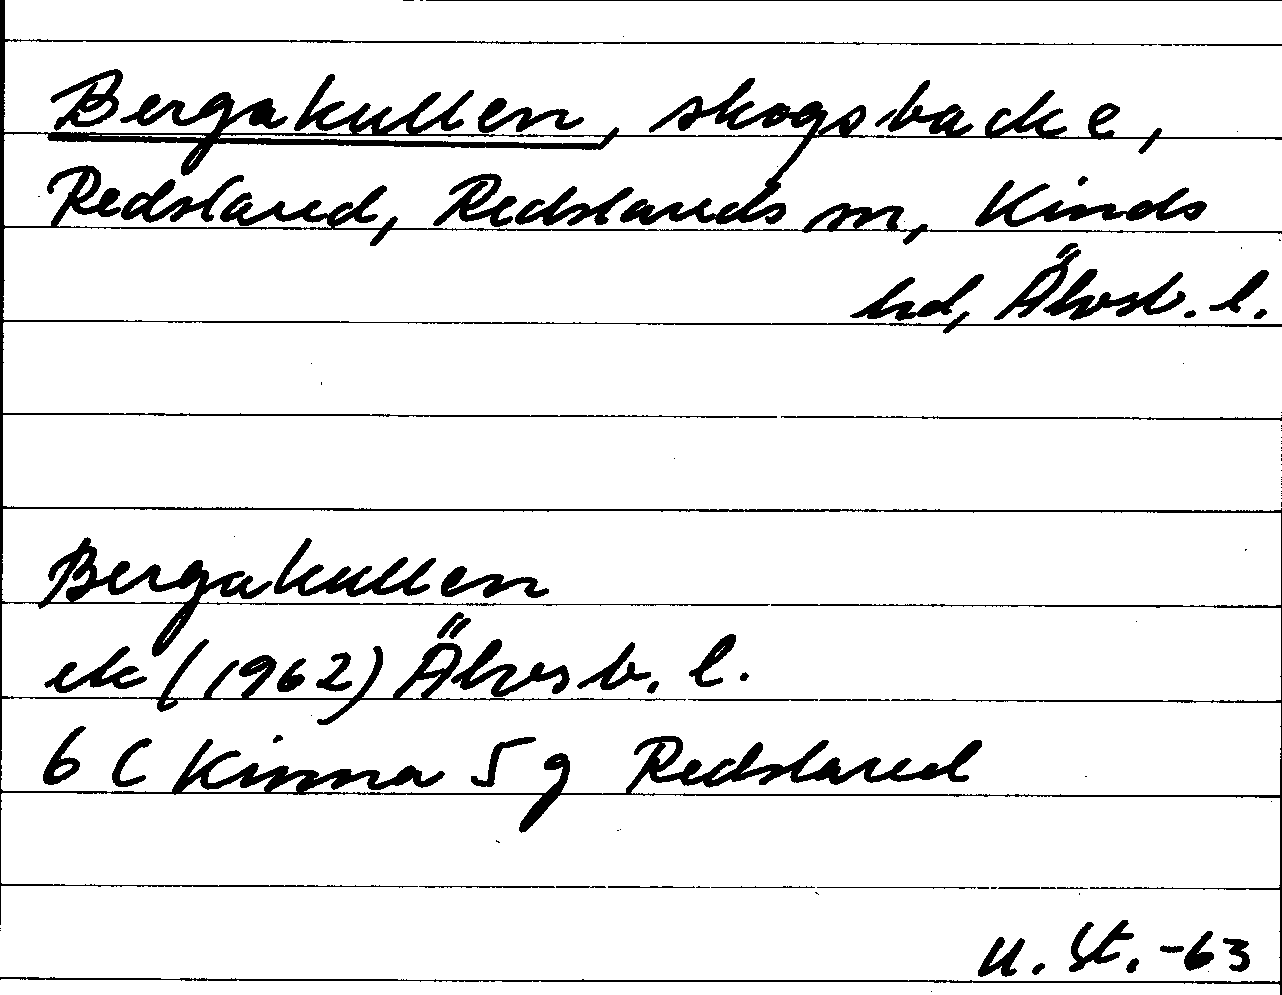 Bergakullen, skogsbacke,
Redslared, Redslareds sn, Kinds
hd, Älvsb. l.
Bergakullen
ek (1962) Älvsb. l.
6 C Kinna 5 g Redslared
U. St. -63